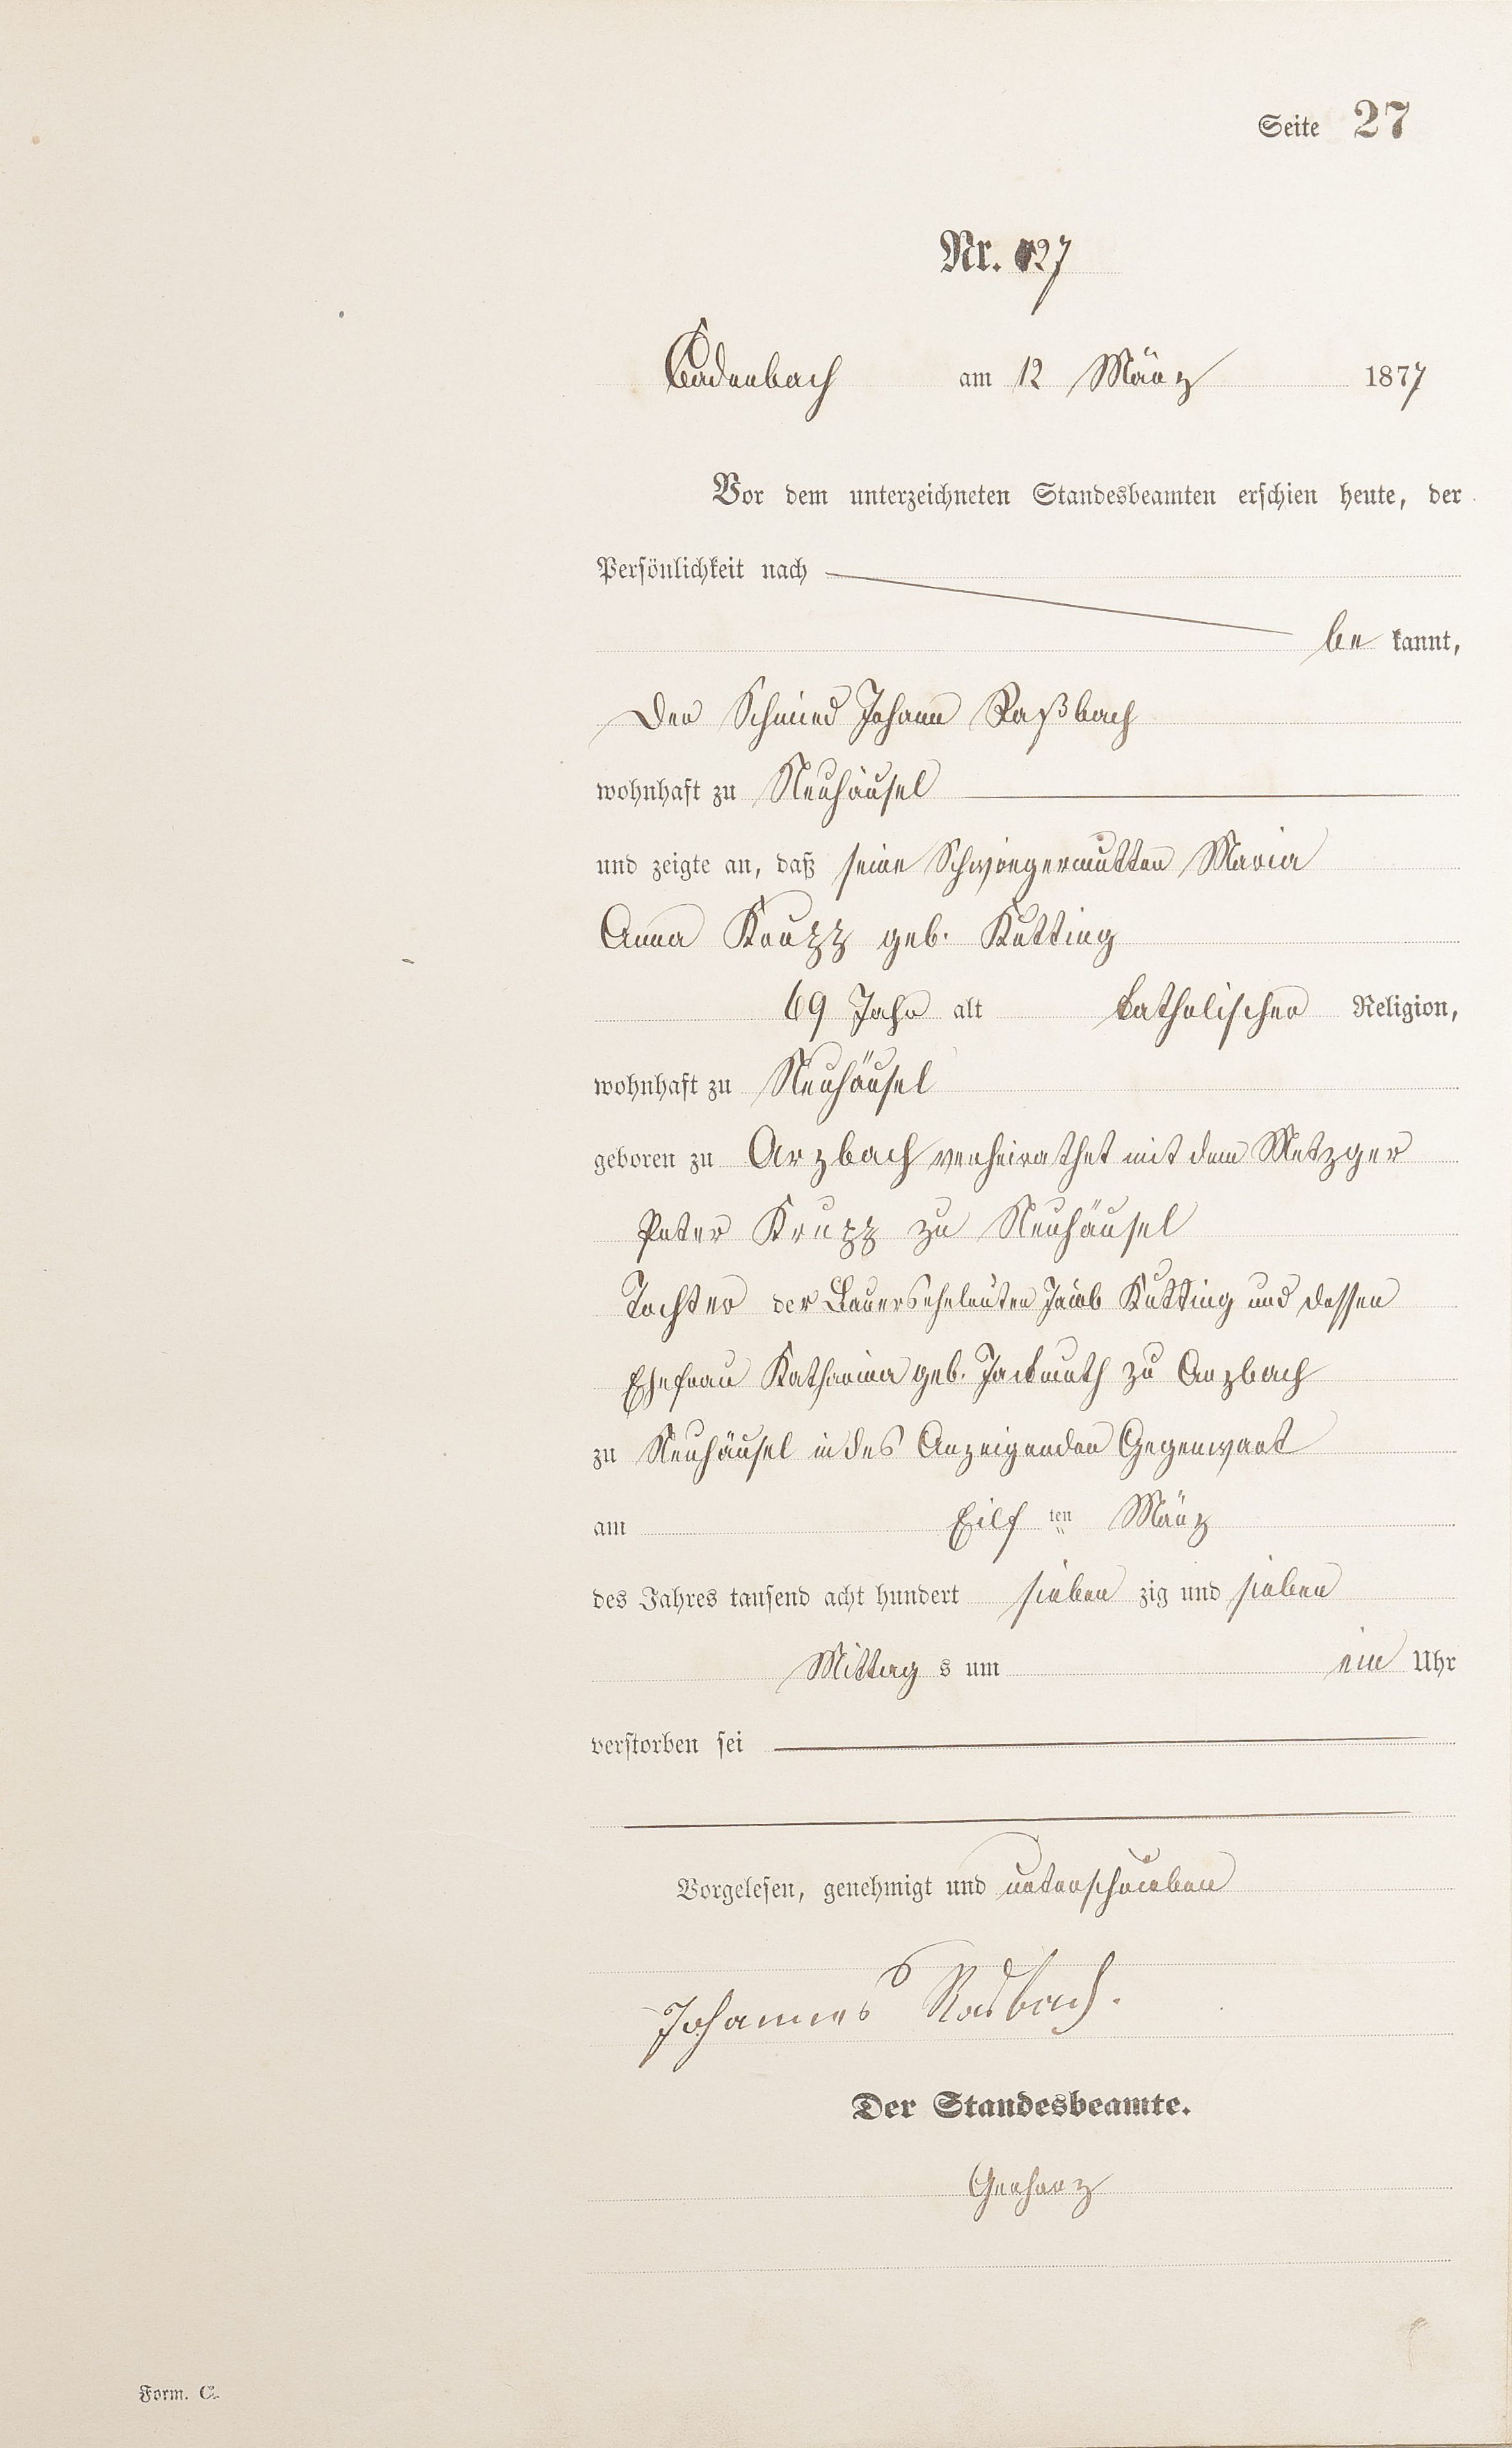 Seite 27
Nr. 27
Cadenbach am 12 März 1877
Vor dem unterzeichneten Standesbeamten erschien heute, der
Persönlichkeit nach
be kannt,
Der Schmied Johann Raßbach
wohnhaft zu Neuhäusel
und zeigte an, daß seine Schwiegermutter Maria
Anna Krupp geb. Kutting
69 Jahr alt katholischer Religion,
wohnhaft zu Neuhäusel
geboren zu Arzbach verheirathet mit dem Metzger
Peter Krupp zu Neuhäusel
Tochter der Bauerseheleuten Jacob Kutting und dessen
Ehefrau Katharina geb. Jackmuth zu Arzbach
zu Neuhäusel in des Anzeigenden Gegenwart
am Eilf ten März
des Jahres tausend acht hundert sieben zig und sieben
Mittag s um ein Uhr
verstorben sei
Vorgelesen, genehmigt und unterschrieben
Johannes Rasbach.
Der Standesbeamte.
Gerharz
Form. C.